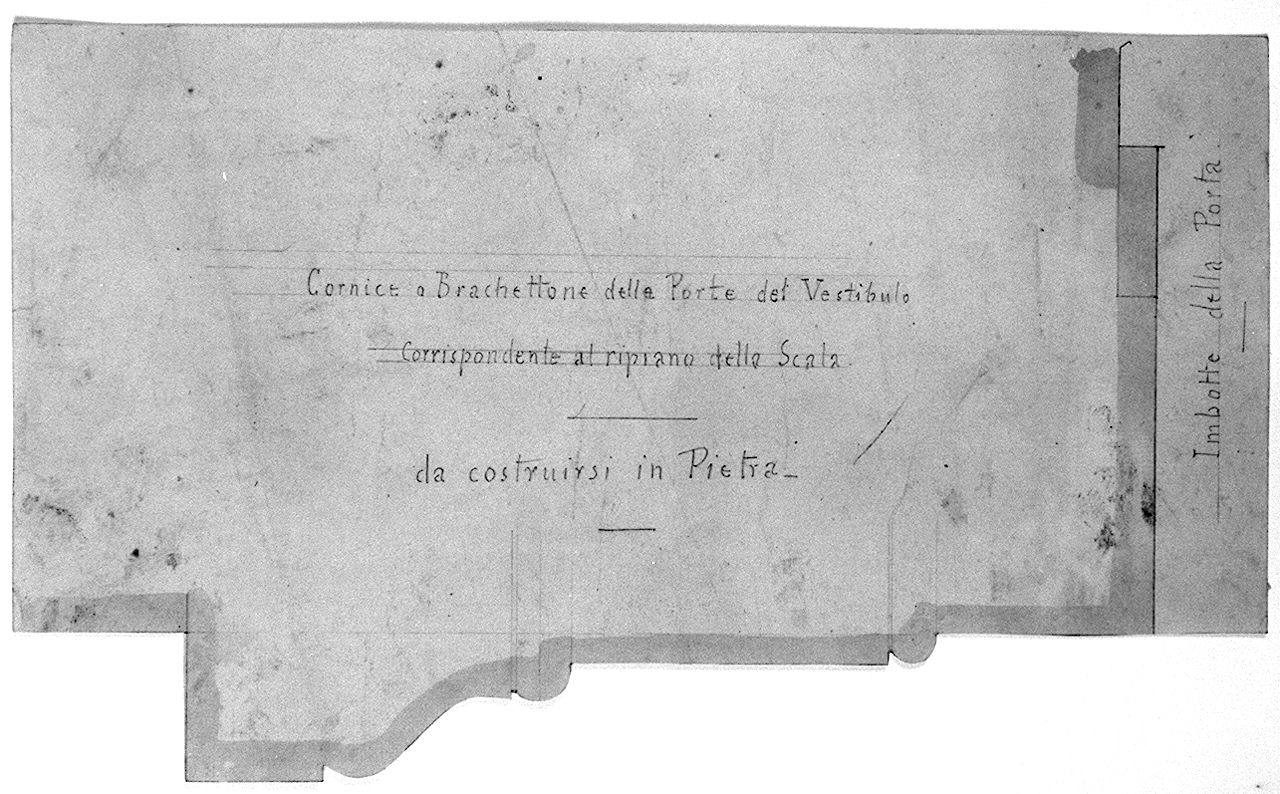 Cornice o Brachettone delle Porte del Vestibulo
Corrispondente al ripiano della Scala.
da costruirsi in Pietra_
Imbotte della Porta.